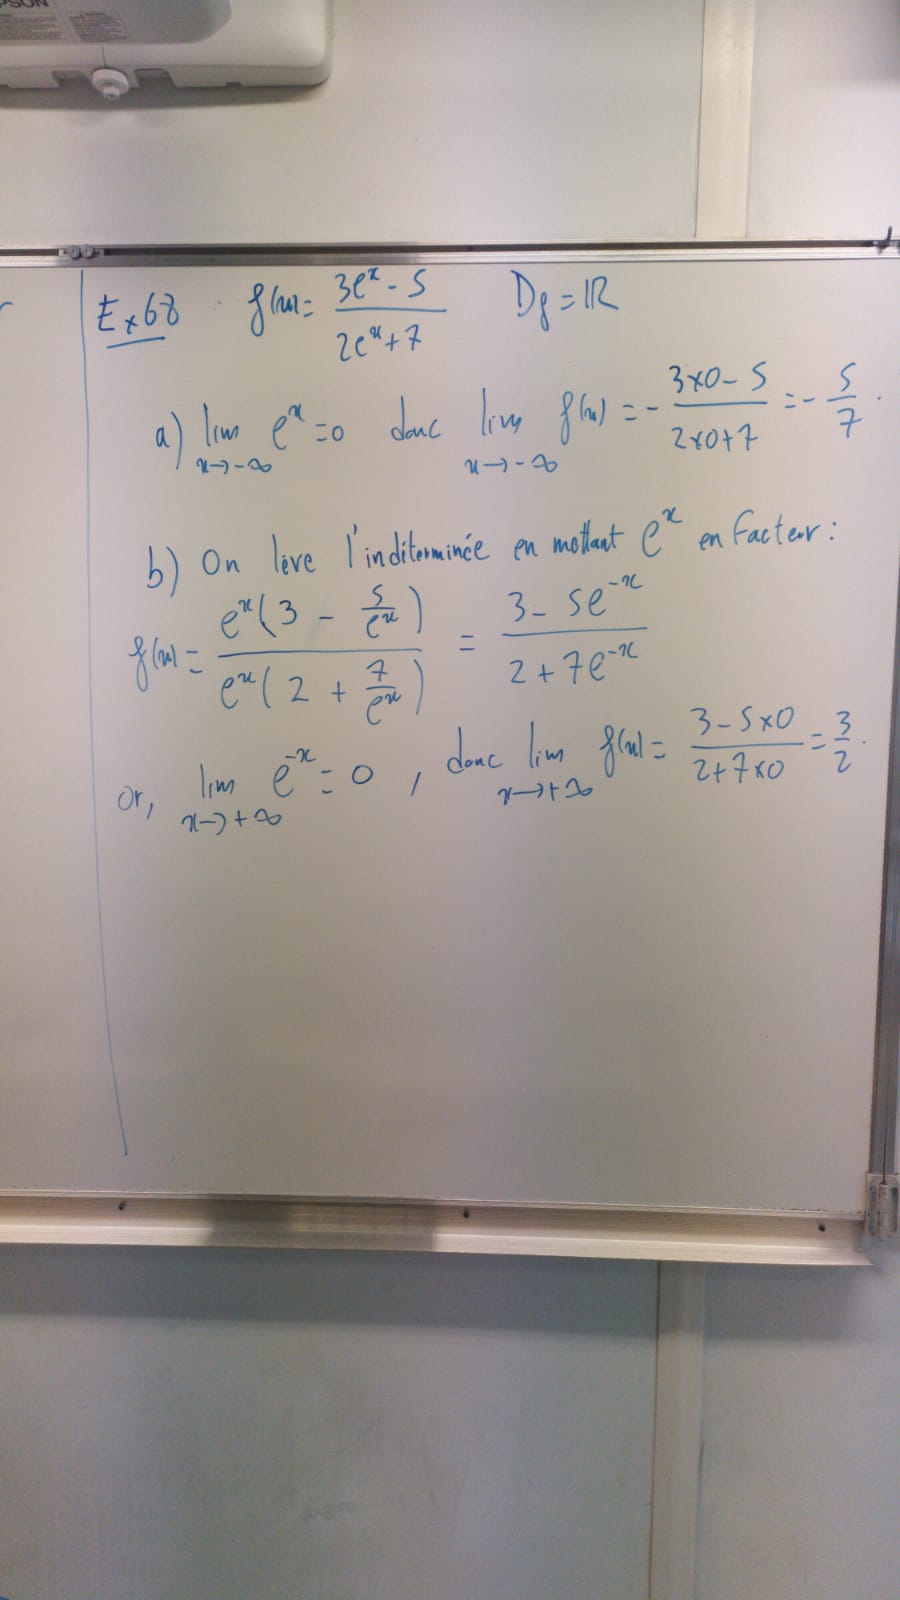 PSON
Ex 68 f(x) = (3e^x - 5)/(2e^x + 7) D_f = ℝ
a) lim_{x→-∞} e^x = 0 donc lim_{x→-∞} f(x) = - (3×0 - 5)/(2×0+7) = - 5/7.
b) On lève l'inditerminée en mettant e^x en facteur :
f(x) = (e^x(3 - 5/e^x))/(e^x(2 + 7/e^x)) = (3 - 5e^{-x})/(2 + 7e^{-x})
or, lim_{x→+∞} e^{-x} = 0, donc lim_{x→+∞} f(x) = (3 - 5×0)/(2+7×0) = 3/2.